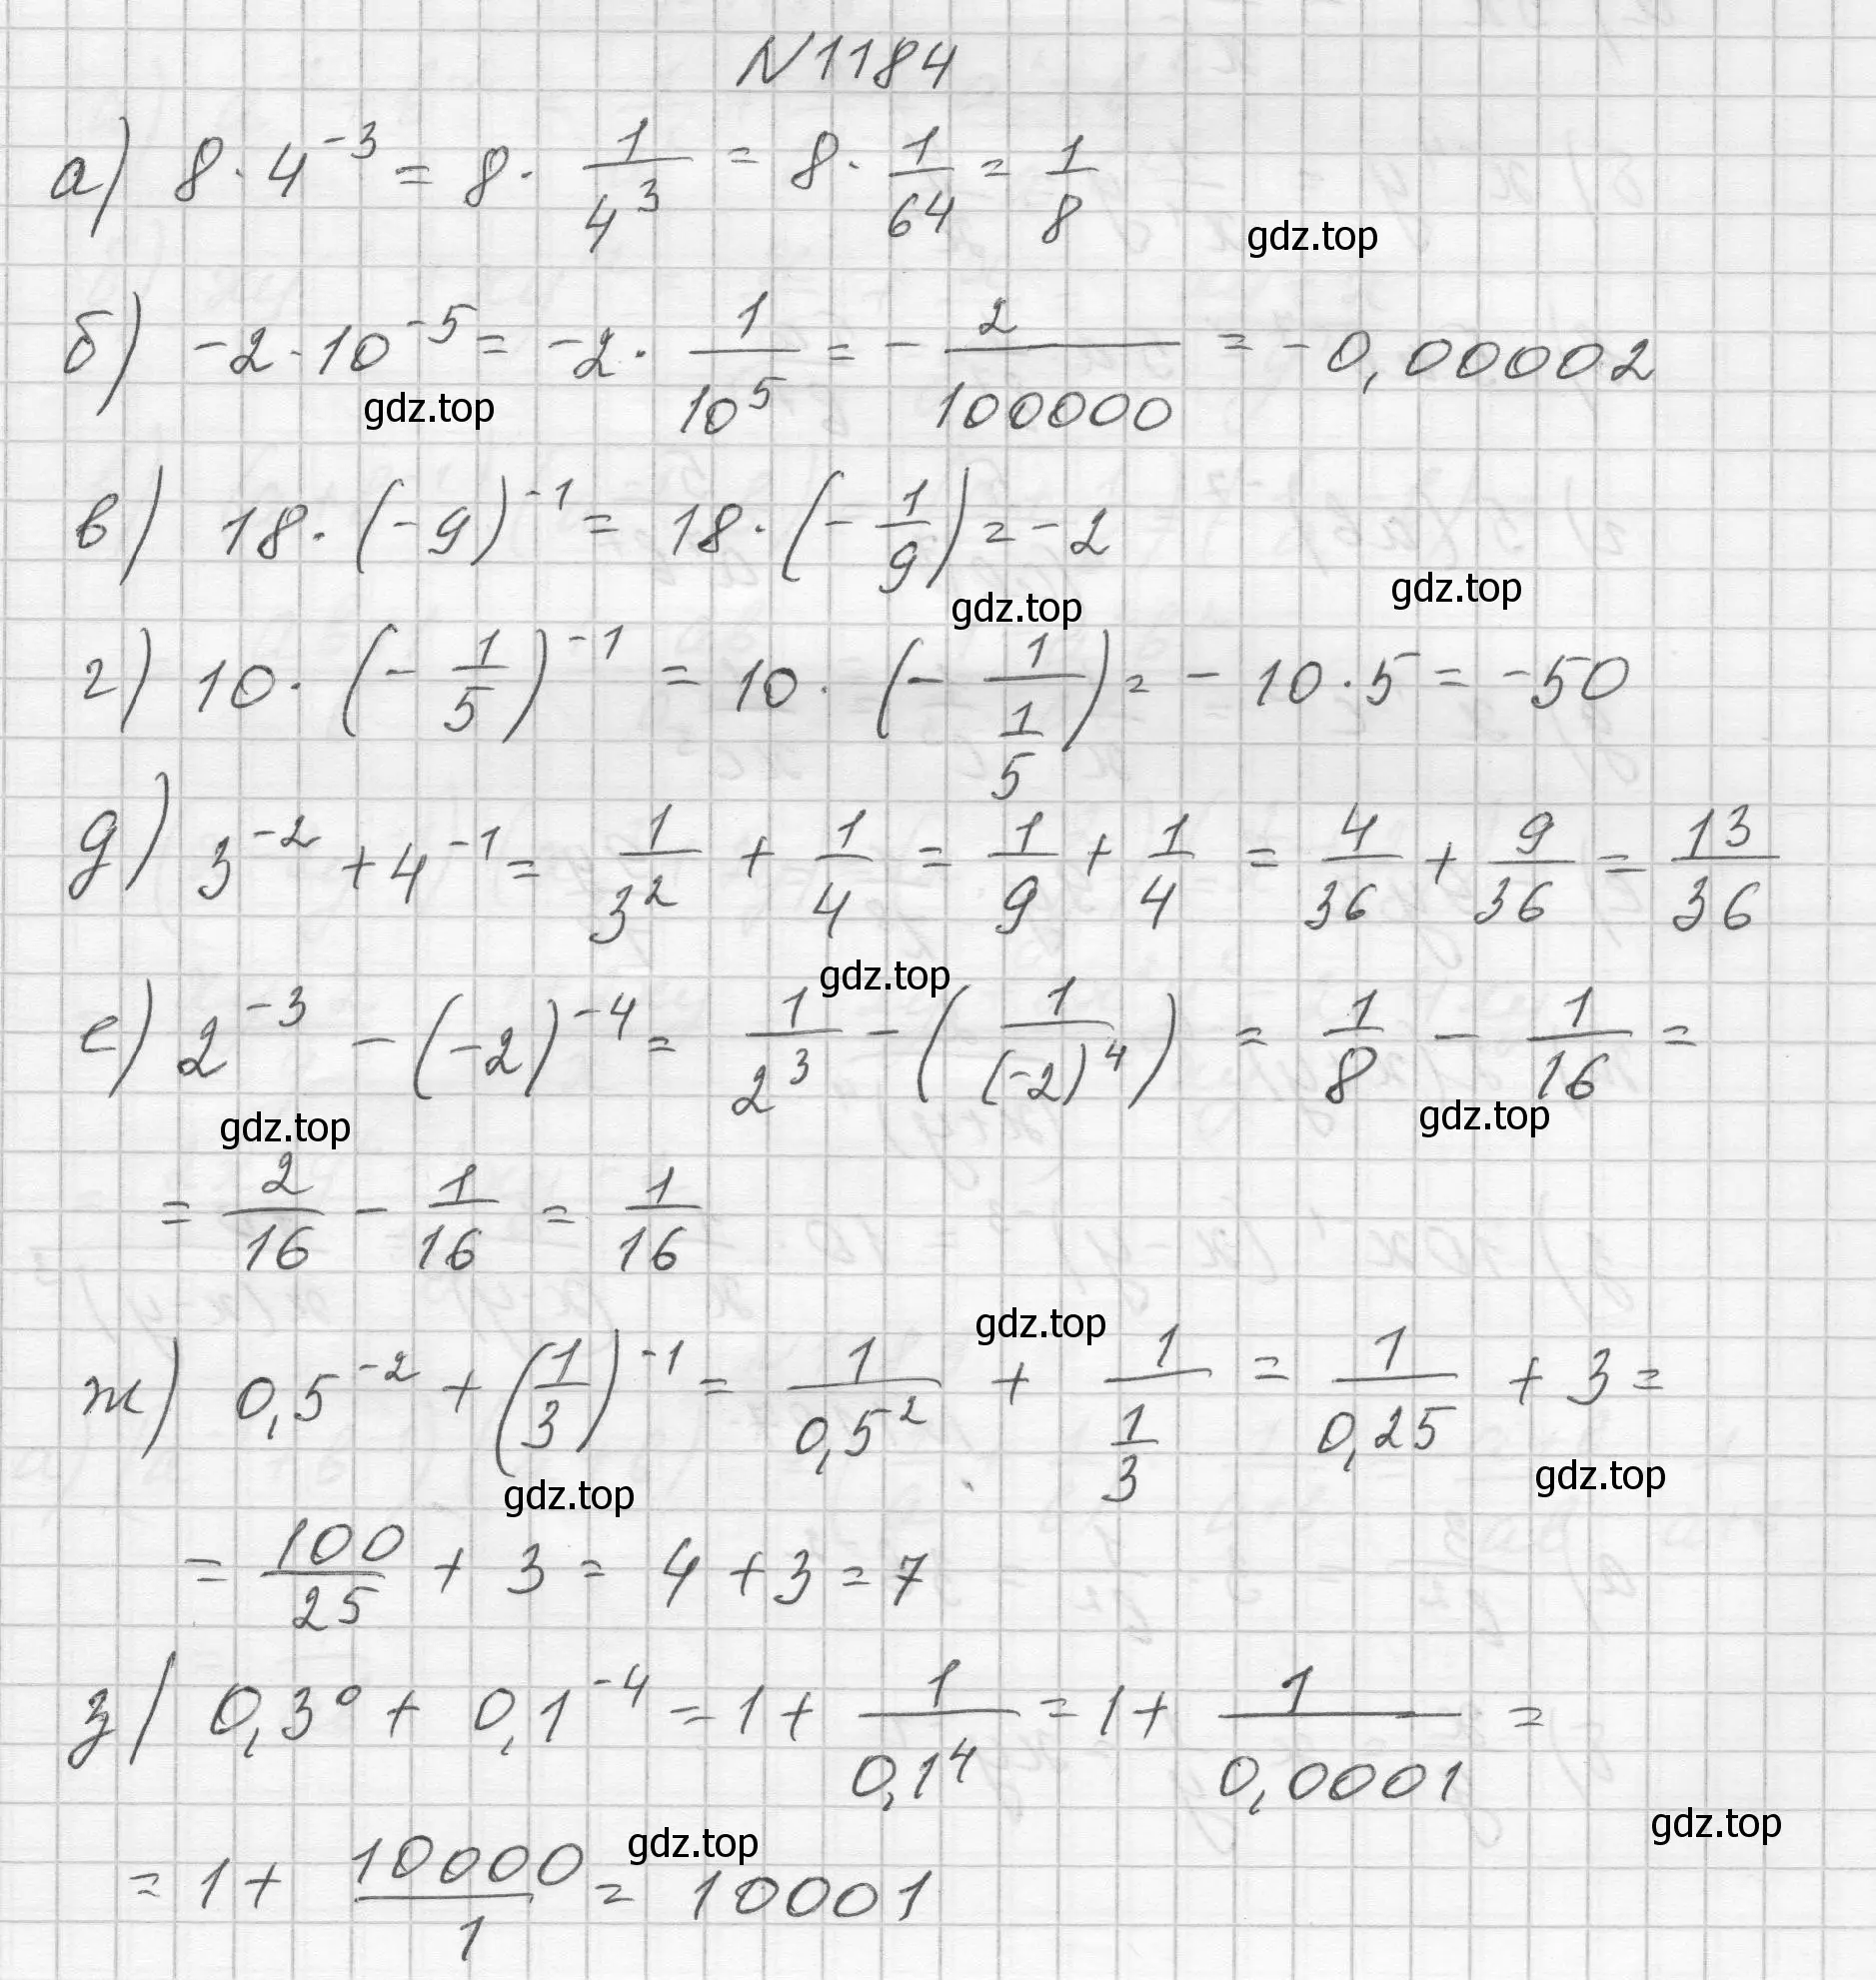 N1184
а) 8 · 4⁻³ = 8 · 1/4³ = 8 · 1/64 = 1/8
gdz.top
б) -2 · 10⁻⁵ = -2 · 1/10⁵ = - 2/100000 = -0,00002
gdz.top
в) 18 · (-9)⁻¹ = 18 · (- 1/9) = -2
gdz.top
gdz.top
г) 10 · (- 1/5)⁻¹ = 10 · (- 1/(1/5)) = - 10 · 5 = -50
д) 3⁻² + 4⁻¹ = 1/3² + 1/4 = 1/9 + 1/4 = 4/36 + 9/36 = 13/36
gdz.top
е) 2⁻³ - (-2)⁻⁴ = 1/2³ - (1/(-2)⁴) = 1/8 - 1/16 =
gdz.top
gdz.top
= 2/16 - 1/16 = 1/16
gdz.top
ж) 0,5⁻² + (1/3)⁻¹ = 1/0,5² + 1/(1/3) = 1/0,25 + 3 =
gdz.top
gdz.top
= 100/25 + 3 = 4 + 3 = 7
з) 0,3⁰ + 0,1⁻⁴ = 1 + 1/0,1⁴ = 1 + 1/0,0001 =
gdz.top
gdz.top
= 1 + 10000/1 = 10001